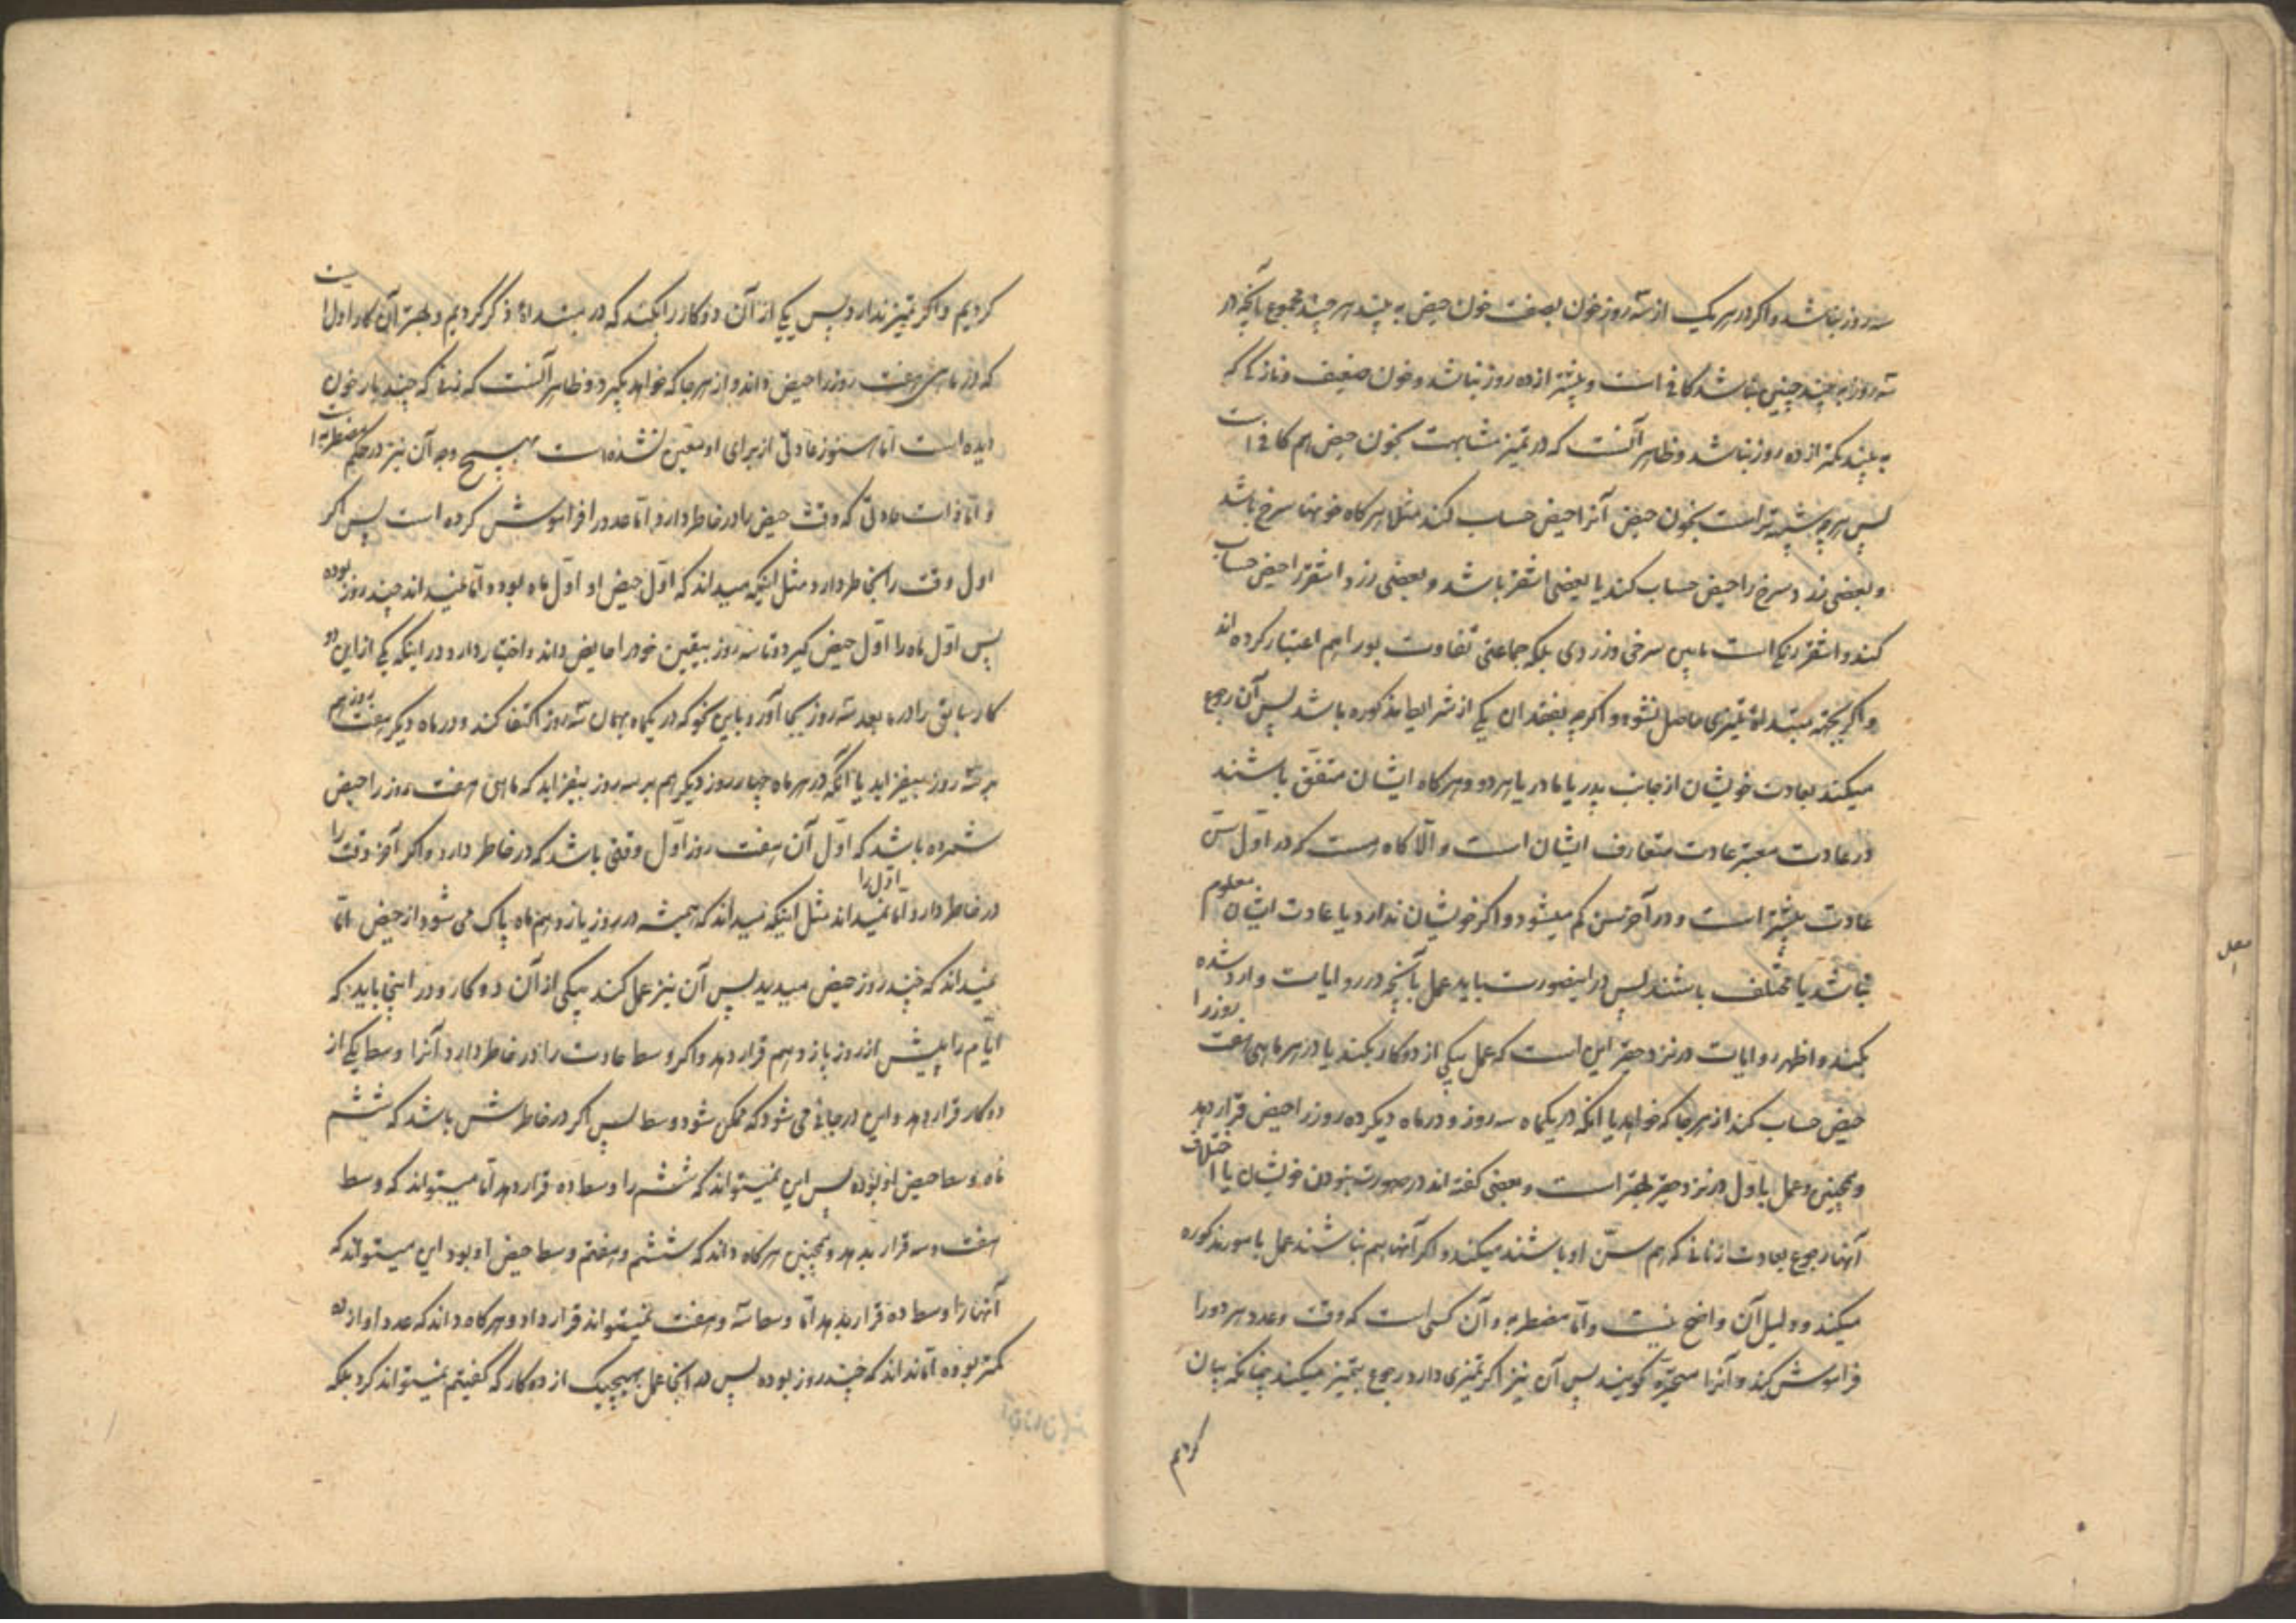 سه روز نباشد و اگر در هر یک از سه روز خون بصفت خون حیض به بیند هر چند مجموع آنچه در
سه روز به بیند چنین نباشد کافی است و بیشتر از ده روز نباشد و خون ضعیف و نازک که
به بیند کمتر از ده روز نباشد و ظاهر آنست که در تمیز مشابهت بخون حیض هم کافی است
پس هر چه شبیه تر است بخون حیض آنرا حیض حساب کند مثلا هر گاه خونها سرخ باشد
و بعضی زرد سرخ را حیض حساب کند یا بعضی اشقر باشد و بعضی زرد اشقر را حیض حساب
کند و اشقر رنگی است مابین سرخی و زردی بلکه جماعتی تفاوت بو را هم اعتبار کرده اند
و اگر بجهة مبتدأة تمیزی حاصل نشود و اگر چه بفقدان یکی از شرایط مذکوره باشد پس آن رجوع
میکند بعادت خویشان از جانب پدر یا مادر یا هر دو و هر گاه ایشان متفق باشند
در عادت معتبر عادت متعارف ایشان است و الا گاه هست که در اول سن
عادت بیشتر است و در آخر سن کم میشود و اگر خویشان ندارد یا عادت ایشان معلوم
نباشد یا مختلف باشند پس در اینصورت باید عمل بآنچه در روایات وارد شده
بکند و اظهر روایات در نزد حقیر این است که عمل بیکی از دو کار بکند یا در هر ماهی هفت روز را
حیض حساب کند از هر جا که خواهد یا انکه در یکماه سه روز و در ماه دیگر ده روز را حیض قرار دهد
و همچنین و عمل باول در نزد حقیر بهتر است و بعضی گفته اند در صورت نبودن خویشان یا اختلاف
آنها رجوع بعادت زنانی که هم سن او باشند میکند و اگر آنها هم نباشند عمل بامور مذکوره
میکند و دلیل آن واضح نیست و اما مضطربه و آن کسی است که وقت و عدد هر دو را
فراموش کند و آنرا متحیره گویند پس آن نیز اگر تمیزی دارد رجوع بتمیز میکند چنانکه بیان
کردیم
کردیم و اگر تمیز ندارد پس یکی از آن دو کار را بکند که در مبتدأة ذکر کردیم و بهتر آن کار اول است
که در ماهی هفت روز را حیض داند و از هر جا که خواهد بگیرد و ظاهر آنست که زنی که چند بار خون
دیده است اما هنوز عادتی از برای او معین نشده است بهیچ وجه آن نیز در حکم مضطربه است
و اما ذات عادتی که وقت حیض را در خاطر دارد اما عدد را فراموش کرده است پس اگر
اول وقت را بخاطر دارد مثل اینکه میداند که اول حیض او اول ماه بود و اما نمیداند چند روز بوده
پس اول ماه را اول حیض گیرد و تا سه روز بیقین خود را حایض داند و اختیار دارد در اینکه یکی از این دو
کار سابق را در ما بعد سه روز بجا آورد باین نحو که در یکماه بهمان سه روز اکتفا کند و در ماه دیگر هفت روز هم
بر سه روز بیفزاید یا آنکه در هر ماه چهار روز دیگر هم بر سه روز بیفزاید که ماهی هفت روز را حیض
شمرده باشد که اول آن هفت روز اول وقتی باشد که در خاطر دارد و اگر آخر وقت را
در خاطر دارد و اما اول را نمیداند مثل اینکه میداند که همیشه در روز یازدهم ماه پاک می شود از حیض اما
نمیداند که چند روز حیض میدید پس آن نیز عمل کند بیکی از آن دو کار و در اینجا باید که
ایام را پیش از روز یازدهم قرار دهد و اگر وسط عادت را در خاطر دارد آنرا وسط یکی از
دو کار قرار دهد و این در جائی می شود که ممکن شود وسط پس اگر در خاطرش باشد که ششم
ماه وسط حیض او بوده پس این نمیتواند که ششم را وسط ده قرار دهد اما میتواند که وسط
هفت و سه قرار بدهد و همچنین هر گاه داند که ششم و هفتم وسط حیض او بود این میتواند که
آنها را وسط ده قرار بدهد اما وسط سه و هفت نمیتواند قرار داد و هر گاه داند که عدد او از ده
کمتر بوده اما نداند که چند روز بوده پس در اینجا عمل بهیچیک از دو کار که گفتیم نمیتواند کرد بلکه